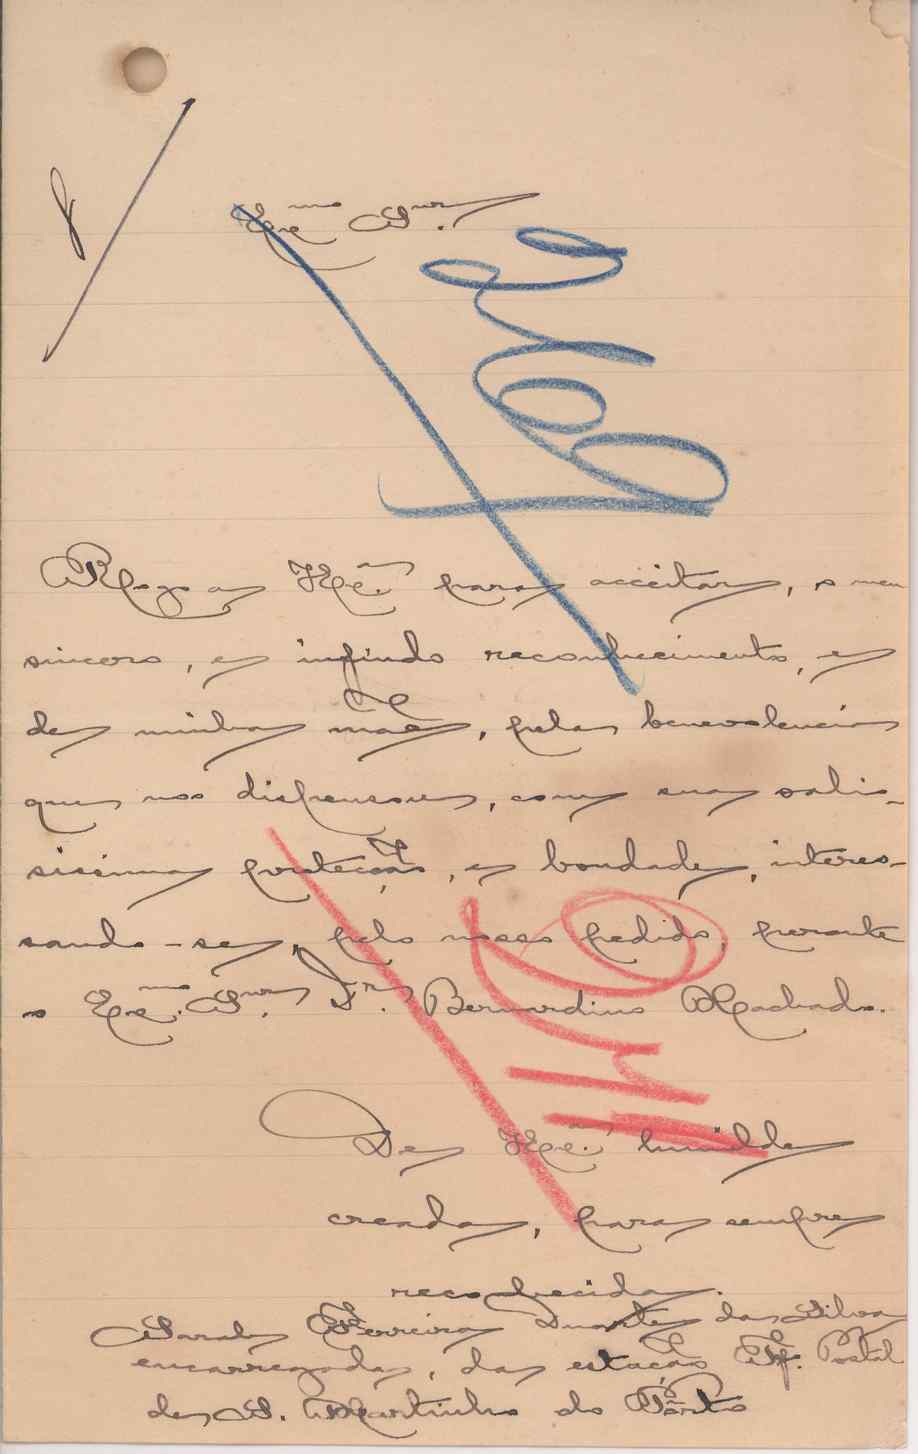 Ex.mo Snr.
Rogo a V. Ex.ª para acceitar, o meu
sincero, e infindo reconhecimento, e
de minha mãe, pela benevolencia
que nos dispensou, com sua valio-
sissima protecção, e bondade, interes-
sando-se, pelo nosso pedido, perante
o Ex.mo Snr. Dr. Bernardino Machado.
De V. Ex.ª humilde
creada, para sempre
reconhecida.
Sarah Ferreira Duarte da Silva
encarregada, da estação Postal
de S. Martinho do Porto